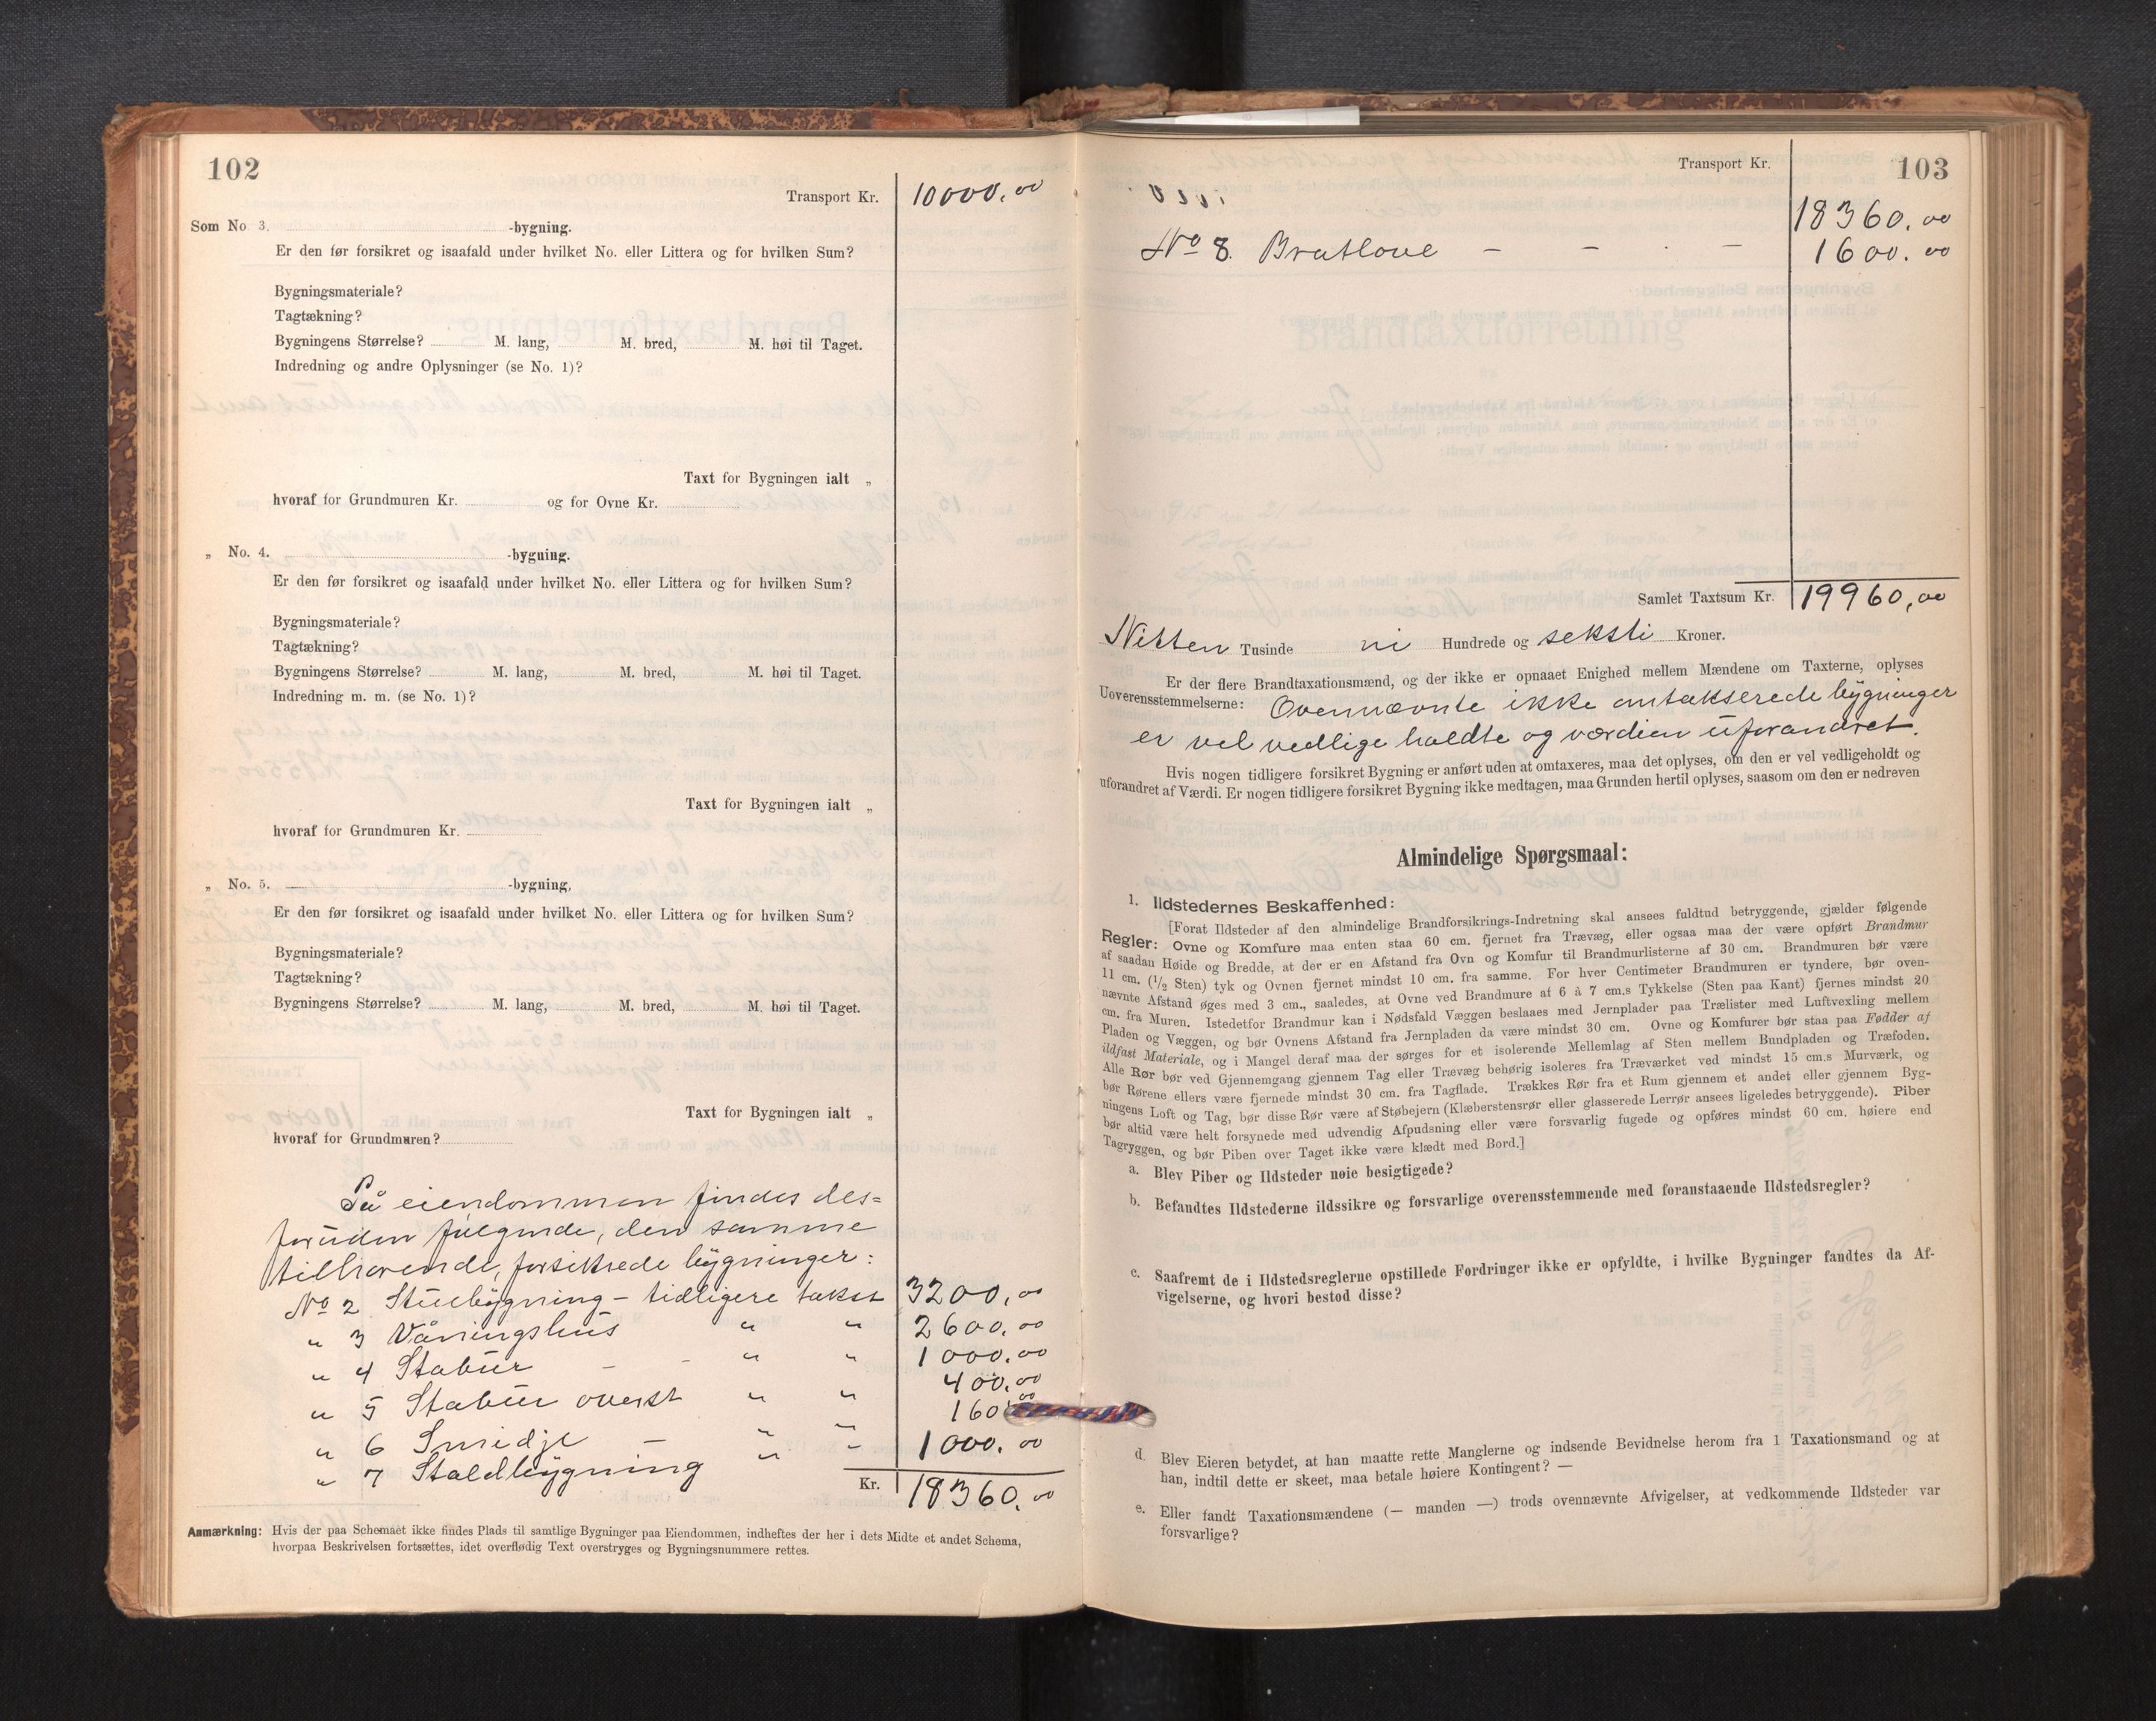 102
Transport Kr. 10000.00
Som No. 3. -bygning.
Er den før forsikret og isaafald under hvilket No. eller Littera og for hvilken Sum?
Bygningsmateriale?
Tagtækning?
Bygningens Størrelse? M. lang, M. bred, M. høi til Taget.
Indredning og andre Oplysninger (se No. 1)?
Taxt for Bygningen ialt „
hvoraf for Grundmuren Kr. og for Ovne Kr.
„ No. 4. -bygning.
Er den før forsikret og isaafald under hvilket No. eller Littera og for hvilken Sum?
Bygningsmateriale?
Tagtækning?
Bygningens Størrelse? M. lang, M. bred, M. høi til Taget.
Indredning m. m. (se No. 1)?
Taxt for Bygningen ialt „
hvoraf for Grundmuren Kr.
„ No. 5. -bygning,
Er den før forsikret og isaafald under hvilket No. eller Littera og for hvilken Sum?
Bygningsmateriale?
Tagtækning?
Bygningens Størrelse? M. lang, M. bred, M. høi til Taget.
Taxt for Bygningen ialt „
hvoraf for Grundmuren?
På eiendommen findes des=
foruden følgende, den samme
tilhørende, forsikrede bygninger:
No 2 Stuebygning – tidligere takst 3200,00
" 3 Våningshus " " 2600,00
" 4 Stabur – - " " 1000,00
" 5 Stabur øverst " " 400,00
" 6 Smidje – " " 160,00
" 7 Staldbygning " " 1000.00
Kr. 18360,00
Anmærkning: Hvis der paa Schemaet ikke findes Plads til samtlige Bygninger paa Eiendommen, indheftes der her i dets Midte et andet Schema,
hvorpaa Beskrivelsen fortsættes, idet overflødig Text overstryges og Bygningsnummere rettes.
103
Transport Kr.
18360.00
No 8. Bratlove – – – 1600.00
Samlet Taxtsum Kr. 19960,00
Nitten Tusinde ni Hundrede og seksti Kroner.
Er der flere Brandtaxationsmænd, og der ikke er opnaaet Enighed mellem Mændene om Taxterne, oplyses
Uoverensstemmelserne: Ovennævnte ikke omtakserede bygninger
er vel vedlige holdte og værdien uforandret.
Hvis nogen tidligere forsikret Bygning er anført uden at omtaxeres, maa det oplyses, om den er vel vedligeholdt og
uforandret af Værdi. Er nogen tidligere forsikret Bygning ikke medtagen, maa Grunden hertil oplyses, saasom om den er nedreven
Almindelige Spørgsmaal:
1. Ildstedernes Beskaffenhed:
[Forat Ildsteder af den almindelige Brandforsikrings-Indretning skal ansees fuldtud betryggende, gjælder følgende
Regler: Ovne og Komfure maa enten staa 60 cm. fjernet fra Trævæg, eller ogsaa maa der være opført Brandmur
af saadan Høide og Bredde, at der er en Afstand fra Ovn og Komfur til Brandmurlisterne af 30 cm. Brandmuren bør være
11 cm. (1/2 Sten) tyk og Ovnen fjernet mindst 10 cm. fra samme. For hver Centimeter Brandmuren er tyndere, bør oven-
nævnte Afstand øges med 3 cm., saaledes, at Ovne ved Brandmure af 6 à 7 cm.s Tykkelse (Sten paa Kant) fjernes mindst 20
cm. fra Muren. Istedetfor Brandmur kan i Nødsfald Væggen beslaaes med Jernplader paa Trælister med Luftvexling mellem
Pladen og Væggen, og bør Ovnens Afstand fra Jernpladen da være mindst 30 cm. Ovne og Komfurer bør staa paa Fødder af
ildfast Materiale, og i Mangel deraf maa der sørges for et isolerende Mellemlag af Sten mellem Bundpladen og Træfoden.
Alle Rør bør ved Gjennemgang gjennem Tag eller Trævæg behørig isoleres fra Træværket ved mindst 15 cm.s Murværk, og
bør Rørene ellers være fjernede mindst 30 cm. fra Tagflade. Trækkes Rør fra et Rum gjennem et andet eller gjennem Byg-
ningens Loft og Tag, bør disse Rør være af Støbejern (Klæberstensrør eller glasserede Lerrør ansees ligeledes betryggende). Piber
bør altid være helt forsynede med udvendig Afpudsning eller være forsvarlig fugede og opføres mindst 60 cm. høiere end
Tagryggen, og bør Piben over Taget ikke være klædt med Bord.]
a. Blev Piber og Ildsteder nøie besigtigede?
b. Befandtes Ildstederne ildssikre og forsvarlige overensstemmende med foranstaaende Ildstedsregler?
c. Saafremt de i Ildstedsreglerne opstillede Fordringer ikke er opfyldte, i hvilke Bygninger fandtes da Af-
vigelserne, og hvori bestod disse?
d. Blev Eieren betydet, at han maatte rette Manglerne og indsende Bevidnelse herom fra 1 Taxationsmand og at
han, indtil dette er skeet, maa betale høiere Kontingent? —
e. Eller fandt Taxationsmændene (— manden —) trods ovennævnte Afvigelser, at vedkommende Ildsteder var
forsvarlige?